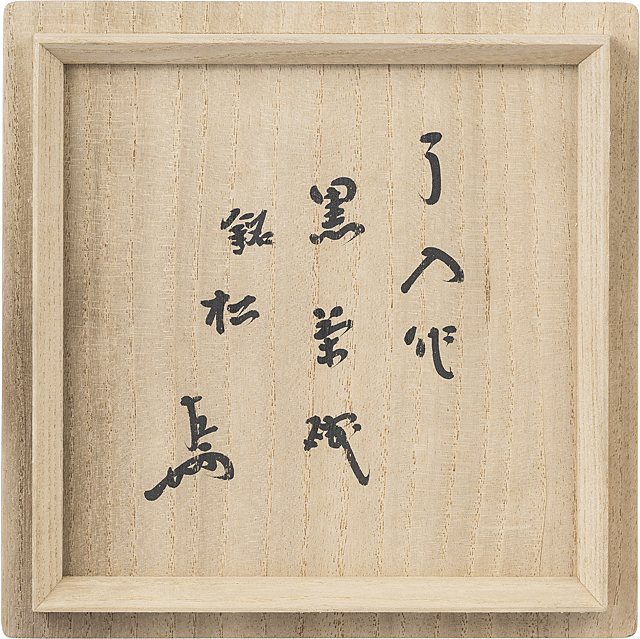 了入作
黒茶碗
銘 松島